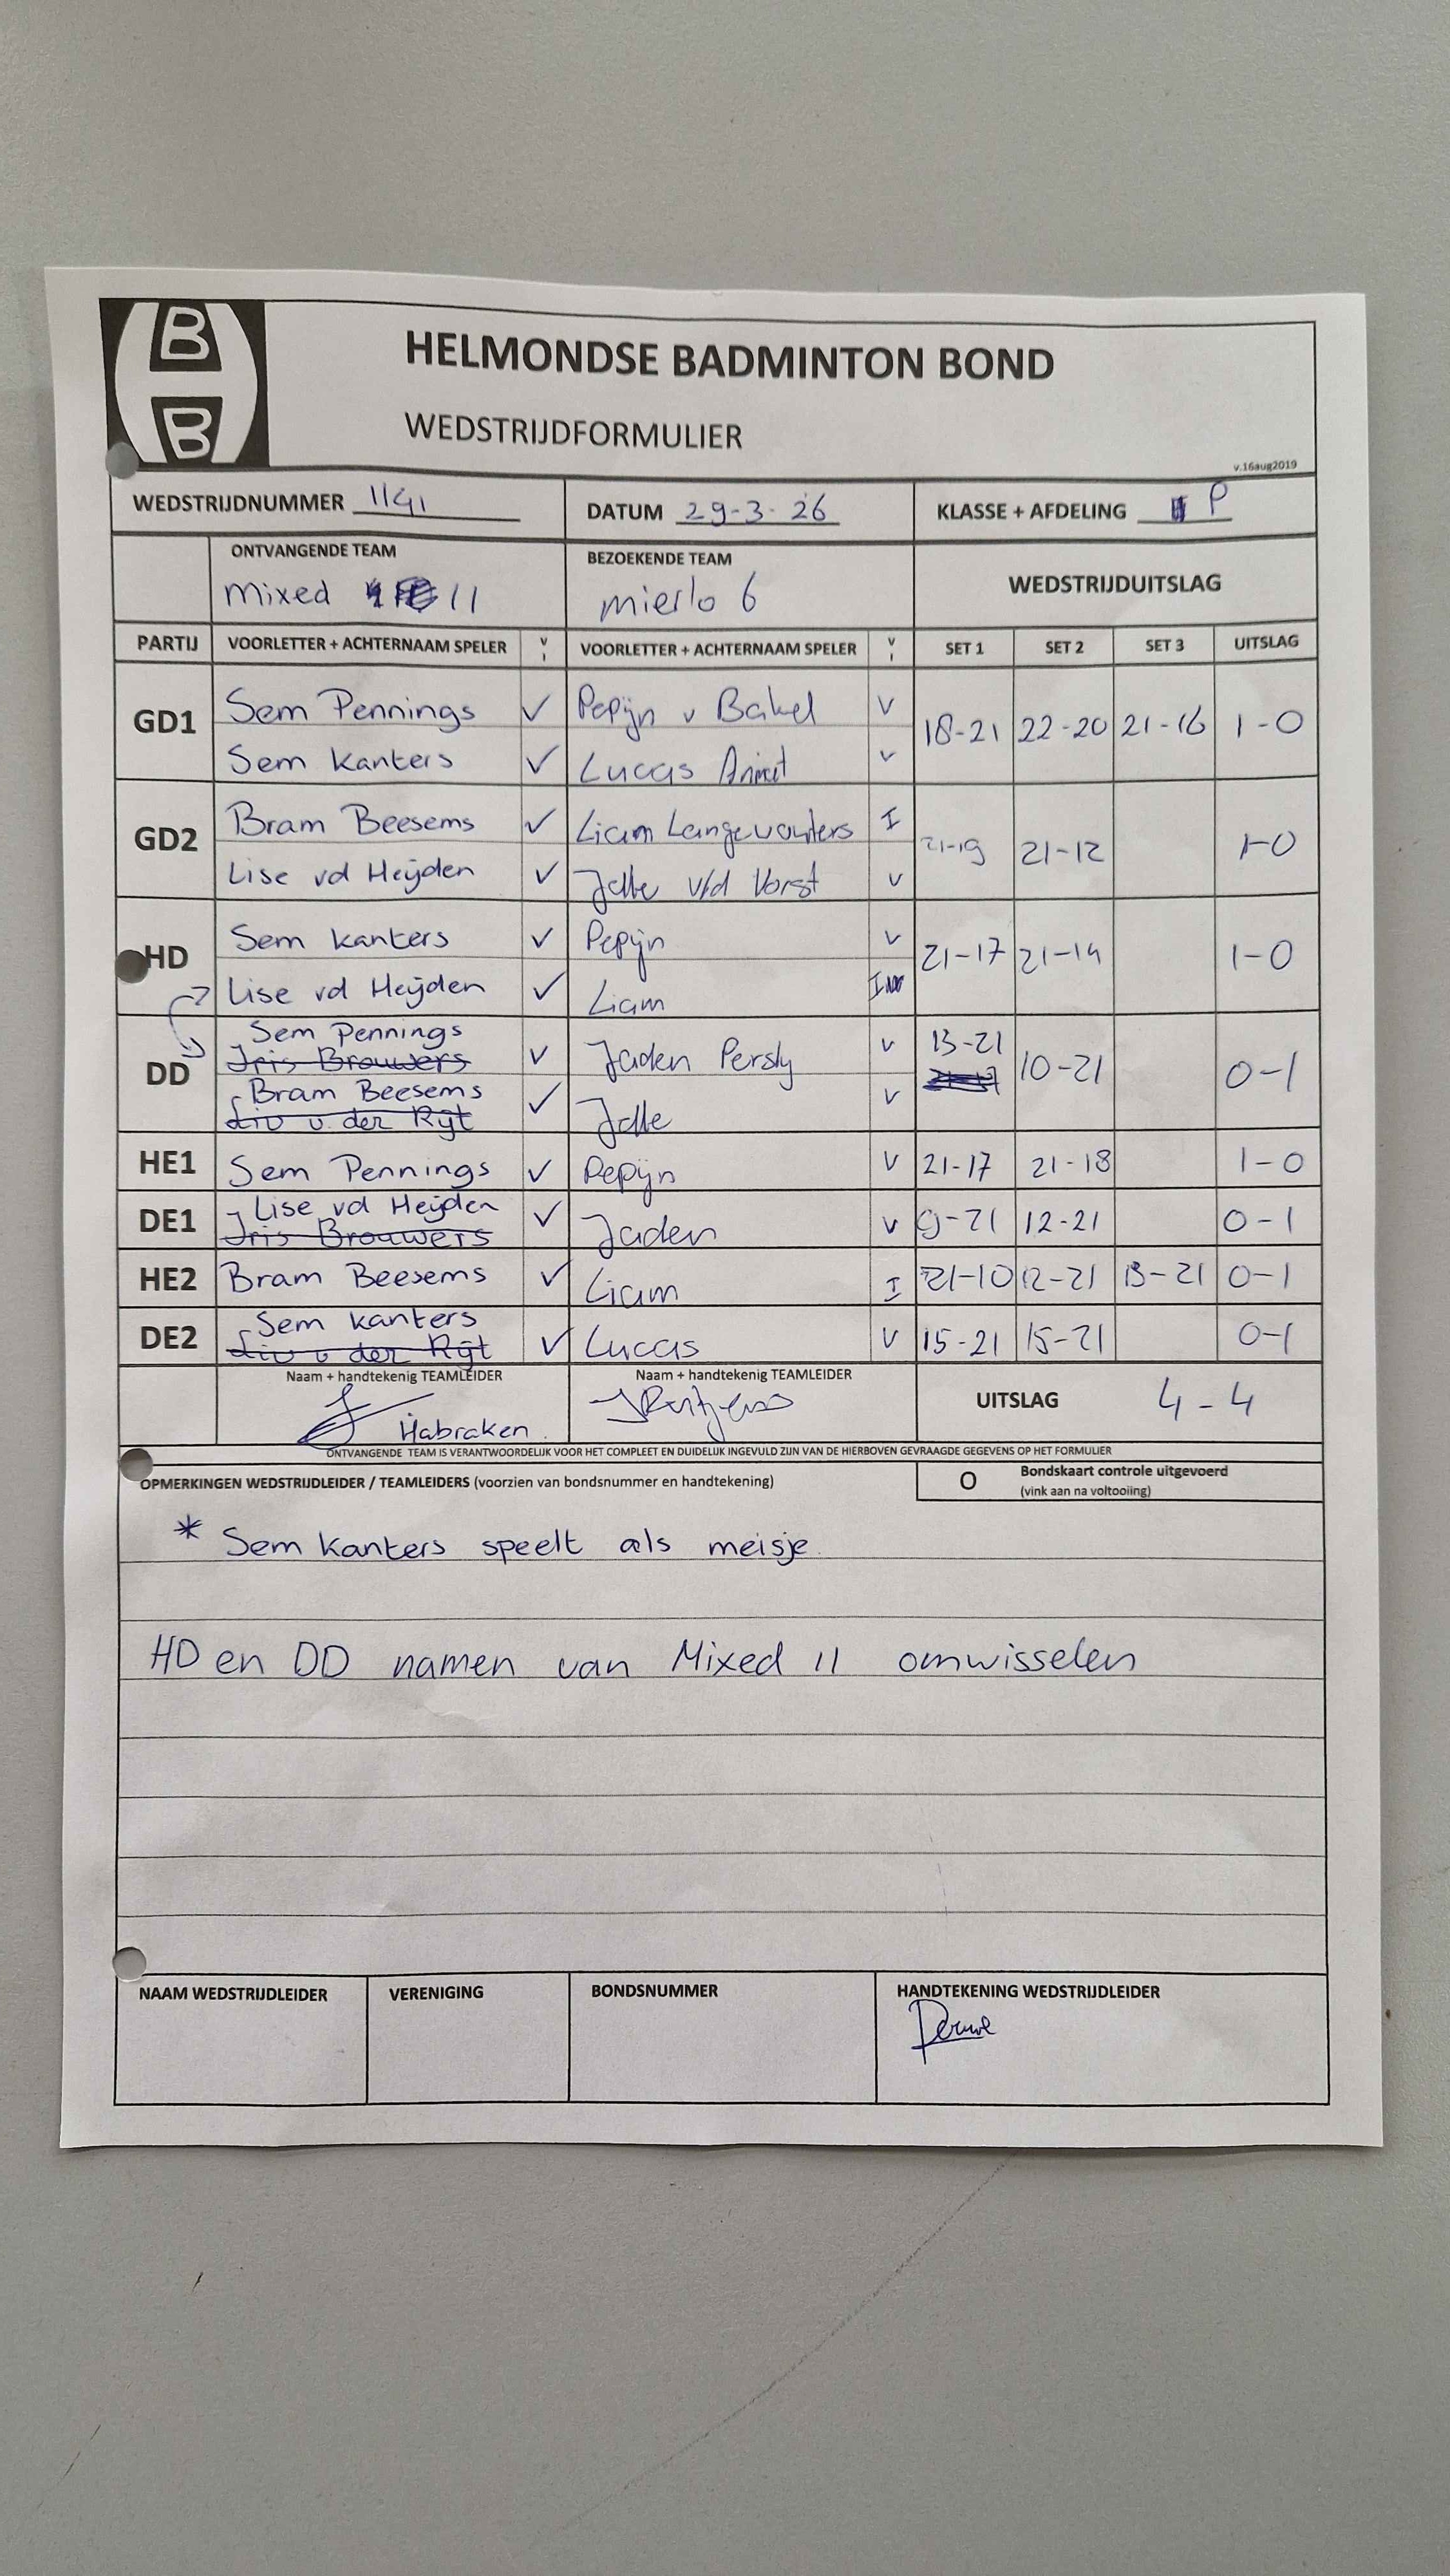 B
B
HELMONDSE BADMINTON BOND
WEDSTRIJDFORMULIER
v.16aug2019
WEDSTRIJDNUMMER 1141 DATUM 29-3-26 KLASSE + AFDELING P
ONTVANGENDE TEAM BEZOEKENDE TEAM WEDSTRIJDUITSLAG
mixed 11 mierlo 6
PARTIJ VOORLETTER + ACHTERNAAM SPELER V I VOORLETTER + ACHTERNAAM SPELER V I SET 1 SET 2 SET 3 UITSLAG
GD1 Sem Pennings ✓ Pepijn v Bakel V 18-21 22-20 21-16 1-0
Sem Kanters ✓ Luccas V
GD2 Bram Beesems ✓ Liam Langewouters I 21-19 21-12 1-0
Lise vd Heijden ✓ Jelle v/d Vorst V
HD Sem Kanters ✓ Pepijn V 21-17 21-14 1-0
Lise vd Heijden ✓ Liam I
DD Sem Pennings ✓ Jaden Persly V 13-21 10-21 0-1
Iris Brouwers
Bram Beesems ✓ Jelle V
Liv v. der Rijt
HE1 Sem Pennings ✓ Pepijn V 21-17 21-18 1-0
DE1 Lise vd Heijden ✓ Jaden V 9-21 12-21 0-1
Iris Brouwers
HE2 Bram Beesems ✓ Liam I 21-10 12-21 13-21 0-1
DE2 Sem Kanters ✓ Luccas V 15-21 15-21 0-1
Liv v der Rijt
Naam + handtekenig TEAMLEIDER Naam + handtekenig TEAMLEIDER UITSLAG 4-4
Habraken
ONTVANGENDE TEAM IS VERANTWOORDELIJK VOOR HET COMPLEET EN DUIDELIJK INGEVULD ZIJN VAN DE HIERBOVEN GEVRAAGDE GEGEVENS OP HET FORMULIER
OPMERKINGEN WEDSTRIJDLEIDER / TEAMLEIDERS (voorzien van bondsnummer en handtekening) O Bondskaart controle uitgevoerd
(vink aan na voltooiing)
* Sem Kanters speelt als meisje.
HD en DD namen van Mixed 11 omwisselen
NAAM WEDSTRIJDLEIDER VERENIGING BONDSNUMMER HANDTEKENING WEDSTRIJDLEIDER